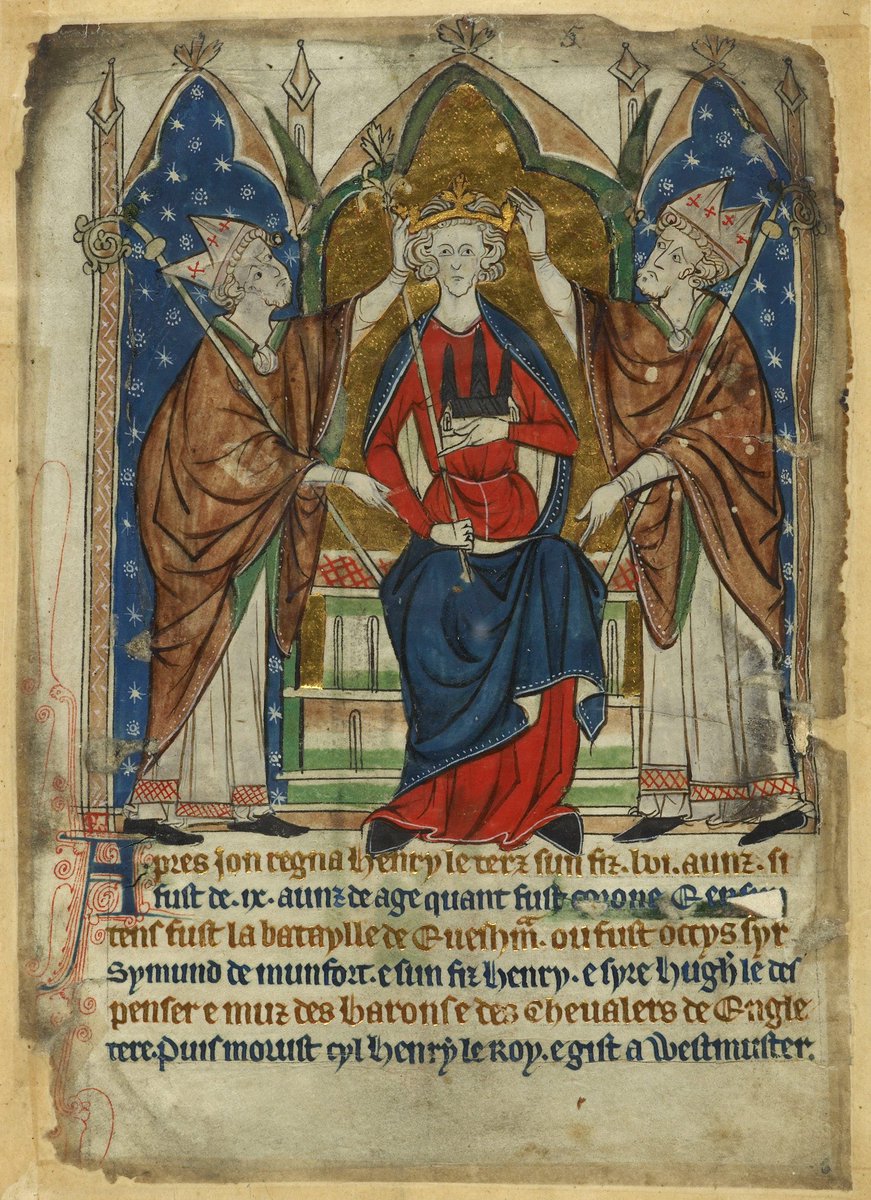 Apres Jon regna Henry le terz sun fiz . lvi . aunz . si
fust de . ix . aunz de age quant fust corone E en sun
tens fust la bataylle de Euesham . ou fust occys syr
Symund de munfort . e sun fiz Henry . e syre Hugh le des
penser e muz des Barons e des Chevalers de Engle
tere . Puis morust cyl Henry le Roy . e gist a Westmuster .